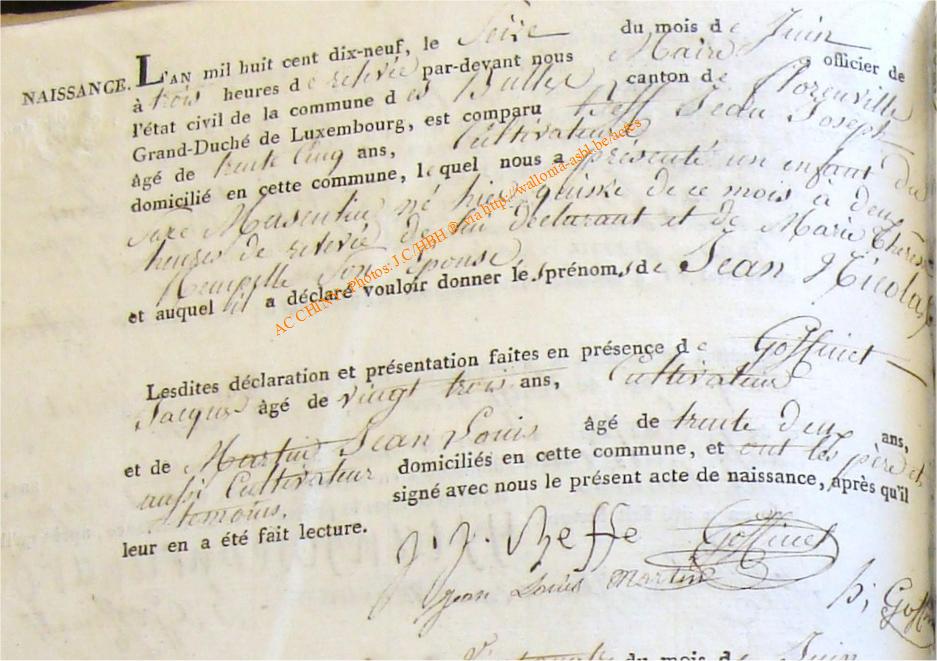 NAISSANCE. L'AN mil huit cent dix-neuf, le Seize du mois de Juin
à trois heures de relevée par-devant nous Maire officier de
l'état civil de la commune des Bulles canton de Florenville
Grand-Duché de Luxembourg, est comparu Jean Joseph
âgé de trente Cinq ans, Cultivateur
domicilié en cette commune, lequel nous a présenté un enfant du
Sexe Masculin né hier quinze de ce mois à deux
heures de relevée de lui déclarant et de Marie Therese
son Epouse,
et auquel il a déclaré vouloir donner les prénoms de Jean Nicolas
Lesdites déclaration et présentation faites en présence de Goffinet
Jacques âgé de vingt trois ans, Cultivateur
et de Martin Jean Louis âgé de trente deux ans,
aussi Cultivateur domiciliés en cette commune, et ont les père et
temoins. signé avec nous le présent acte de naissance, après qu'il
leur en a été fait lecture.
J. J. Goffinet
Jean Louis Martin
du mois de Juin
AC CHINY - Photos: J.C/HBH ® via http://walloma-asbl.be/actes